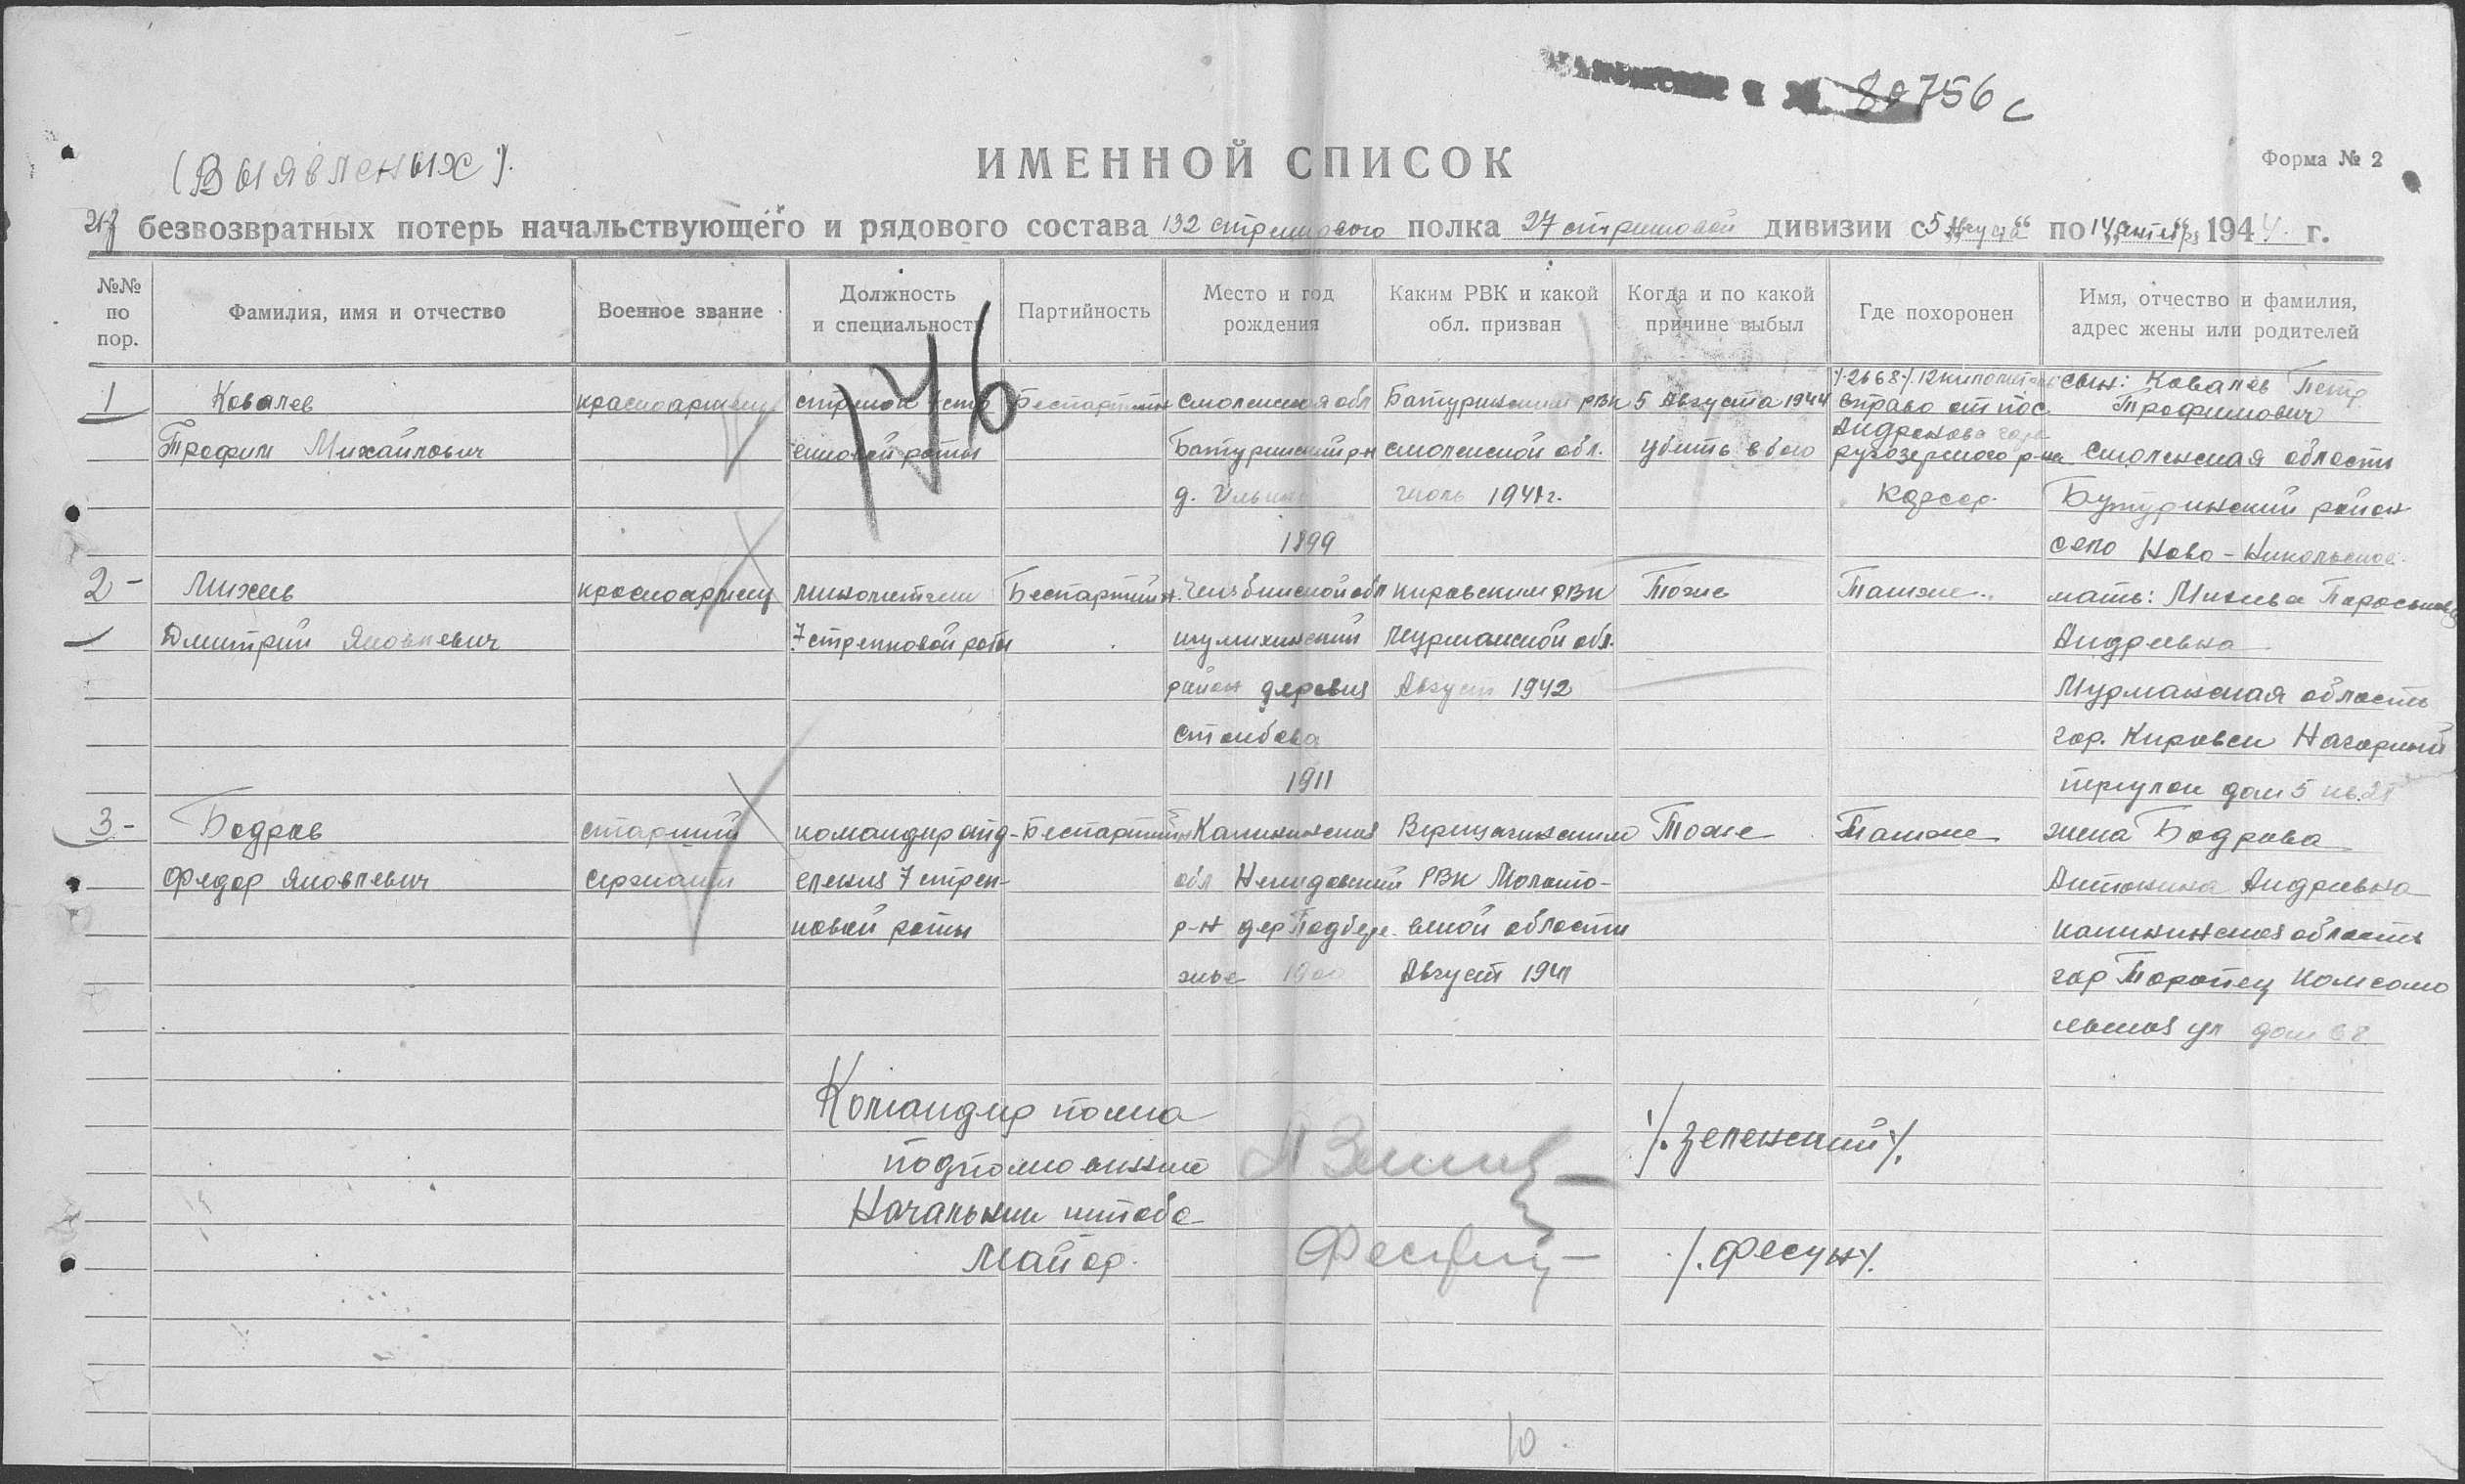 89756 с
(Выявленых).
ИМЕННОЙ СПИСОК
Форма № 2
безвозвратных потерь начальствующего и рядового состава 132 стрелкового полка 27 стрелковой дивизии с 5 августа по 14 1944 г.
№№ по пор.
Фамилия, имя и отчество
Военное звание
Должность и специальность
Партийность
Место и год рождения
Каким РВК и какой обл. призван
Когда и по какой причине выбыл
Где похоронен
Имя, отчество и фамилия, адрес жены или родителей
176
1
Ковалев
Трофим Михайлович
красноармеец
стрелок
роты
Беспартийн
Смоленская обл
Батуринский р-н
д.
1899
Батуринским РВК
Смоленской обл.
июль 1941г.
5 Августа 1944
убит в бою
12 километ
вправо от пос.
Андронова гора
ругозерского р-на
Кфсср.
сын: Ковалев Петр
Трофимович
Смоленская области
Бутуринский район
село Ново-Никольское
2-
Михеев
Дмитрий Яковлевич
красноармеец
минометчик
7 стрелковой роты
Беспартийн.
Челябинской обл
шумихинский
район деревня
Столбова
1911
Кировским РВК
Мурманской обл.
Август 1942
Тоже
Также
мать: Михеева
Андреевна
Мурманская область
гор. Кировск Нагорный
переулок дом 5 кв. 21
3-
Бодров
Федор Яковлевич
старший
сержант
командир отд-
еления 7 стрел-
ковой роты
Беспартийн
Калининская
обл Нелидовский
р-н дер Подбере
жье 1900
Верещагинским
РВК Молото-
вской области
Август 1941
Тоже
Также
жена Бодрова
Антонина Андреевна
Калининская область
гор Торопец Комсомо
льская ул дом 68
Командир полка
подполковник
/.Зеленский/.
Начальник штаба
Майор.
/.Фесун/.
10